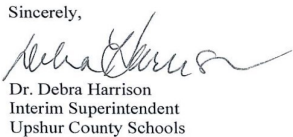 Sincerely,
Debra Harrison
Dr. Debra Harrison
Interim Superintendent
Upshur County Schools